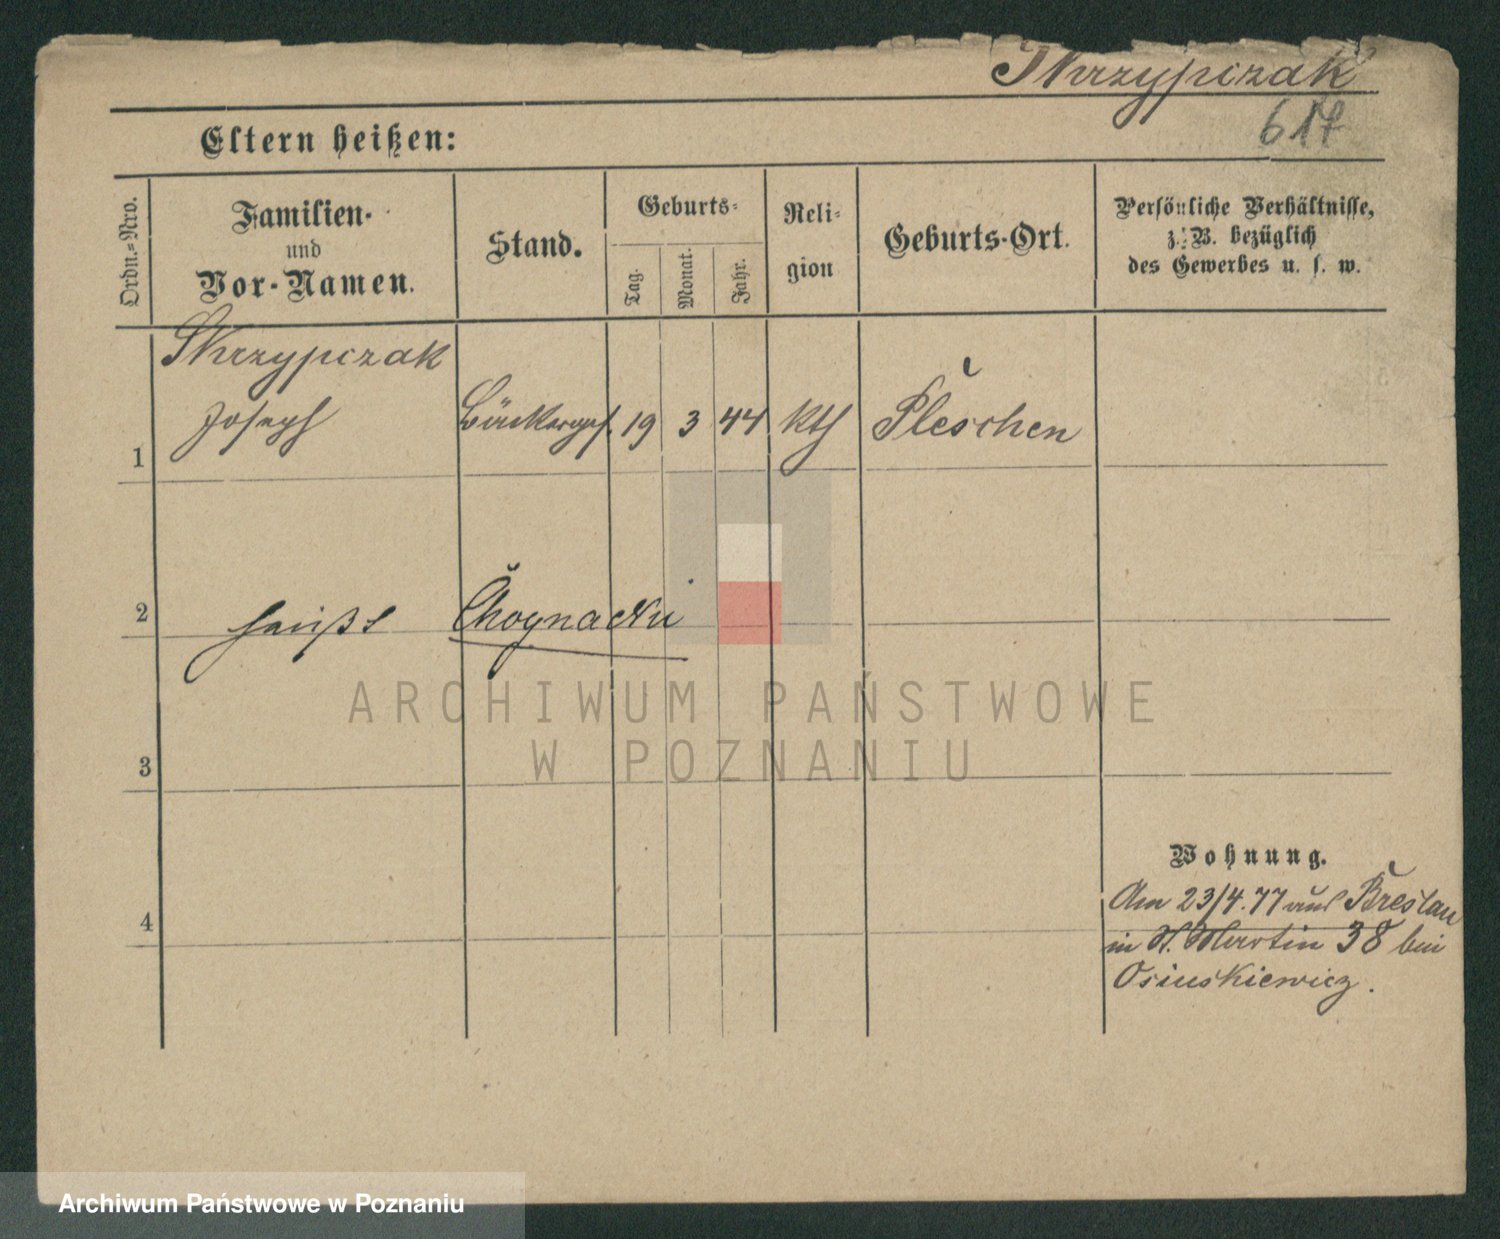 Skrzypczak
617
Eltern heißen:
Ordn.-Nro.
Familien-
und
Vor-Namen.
Stand.
Geburts-
Tag.
Monat.
Jahr.
Reli-
gion
Geburts-Ort.
Persönliche Verhältnisse,
z. B. bezüglich
des Gewerbes u. s. w.
Skrzypczak
Joseph
1
Bäckerges.
19
3
44
kth
Pleschen
2
heißt
Choynacki
ARCHIWUM PAŃSTWOWE
W POZNANIU
3
Wohnung.
4
Am 23/4.77 aus Breslau
in St. Martin 38 bei
Osinskiewicz.
Archiwum Państwowe w Poznaniu